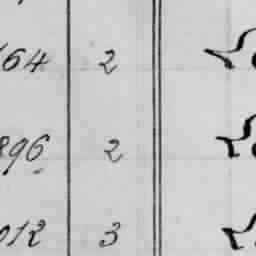 64 2
896 2
012 3